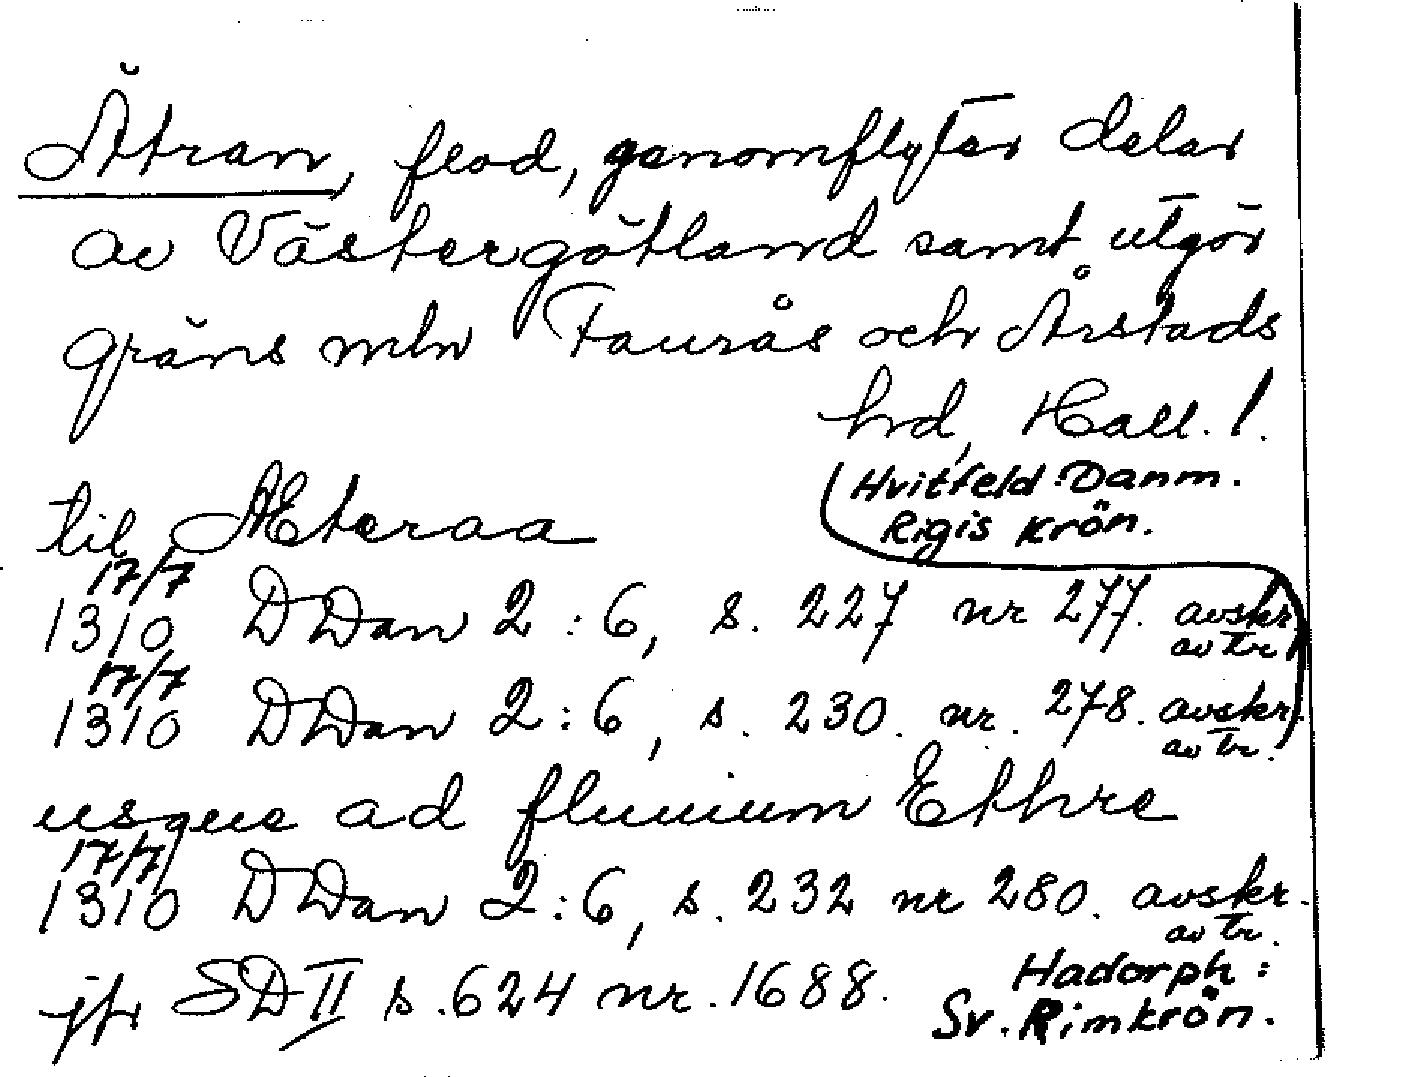 Ätran, flod, genomflyter delar
av Västergötland samt utgör
gräns mln Faurås och Årstads
hrd, Hall. l.
Hvitfeld: Danm.
Rigis Krön.
til Æteraa
17/7
1310 DDan 2:6, s. 227 nr 277. avskr.
av tr.
17/7
1310 DDan 2:6, s. 230. nr. 278. avskr.
av tr.
usque ad fluuium Ethre
17/7
1310 DDan 2:6, s. 232 nr 280. avskr.
av tr.
jfr SD II s. 624 nr. 1688.
Hadorph:
Sv. Rimkrön.